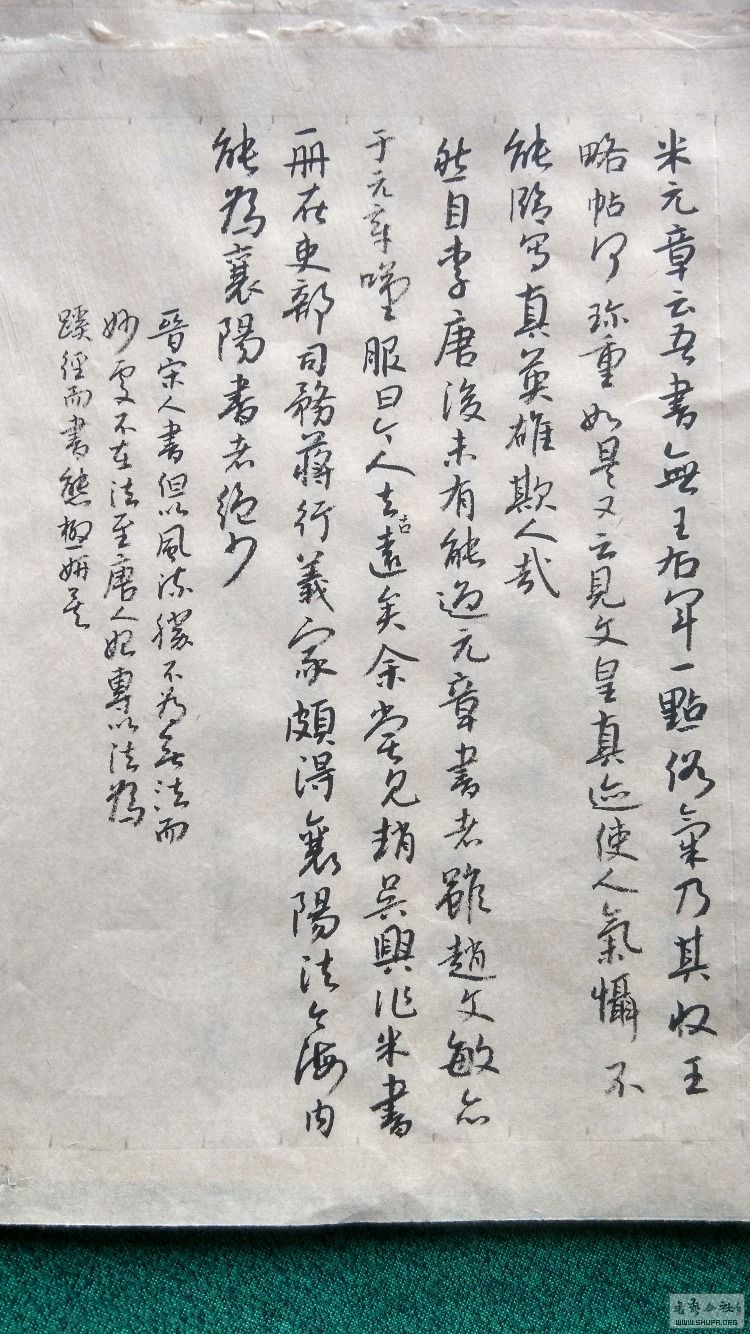 米元章云吾書無王右軍一點俗氣乃其收王
略帖何珎重如是又云見文皇真迹使人氣懾不
能臨寫真英雄欺人哉
然自李唐後未有能過元章書者雖趙文敏亦
于元章嘆服曰今人去古遠矣余嘗見趙吳興作米書
一冊在吏部司務蔣行義家頗得襄陽法今海内
能為襄陽書者絕少
晉宋人書但以風流勝不為無法而
妙處不在法至唐人始專以法為
蹊徑而書態極妍矣
WWW.SHUFA.ORG